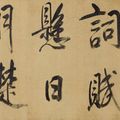 詞賦
懸日
月楚